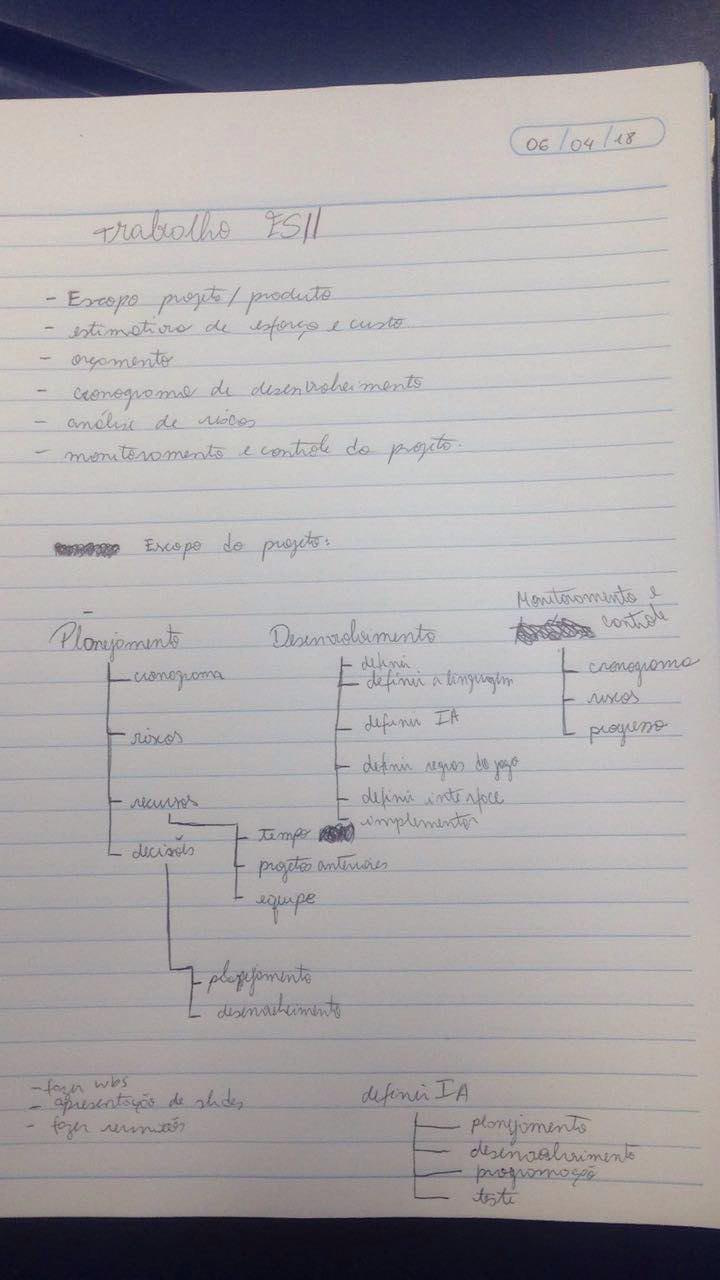 06/04/18
Trabalho ES//
- Escopo projeto / produto
- estimativa de esforço e custo
- orçamento
- cronograma de desenvolvimento
- análise de riscos
- monitoramento e controle do projeto.
Escopo do projeto:
Planejamento
cronograma
riscos
recursos
tempo
projetos anteriores
equipe
decisões
planejamento
desenvolvimento
Desenvolvimento
definir
definir a linguagem
definir IA
definir regras do jogo
definir interface
implementar
Monitoramento e
controle
cronograma
riscos
progresso
- fazer wbs
- apresentação de slides
- fazer
definir IA
planejamento
desenvolvimento
programação
teste